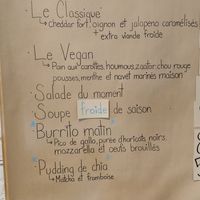 · Le Classique
↳ Cheddar fort, oignon et jalapeno caramélisés
+ extra viande froide
· Le Vegan
↳ Pain aux carottes, houmous, zaatar, chou rouge
pousses, menthe et navet marinés maison
· Salade du moment
Soupe froide de saison
* Burrito matin
↳ Pico de gallo, purée d'haricots noirs
mozzarella et oeufs brouillés
* Pudding de chia
↳ Matcha et framboise